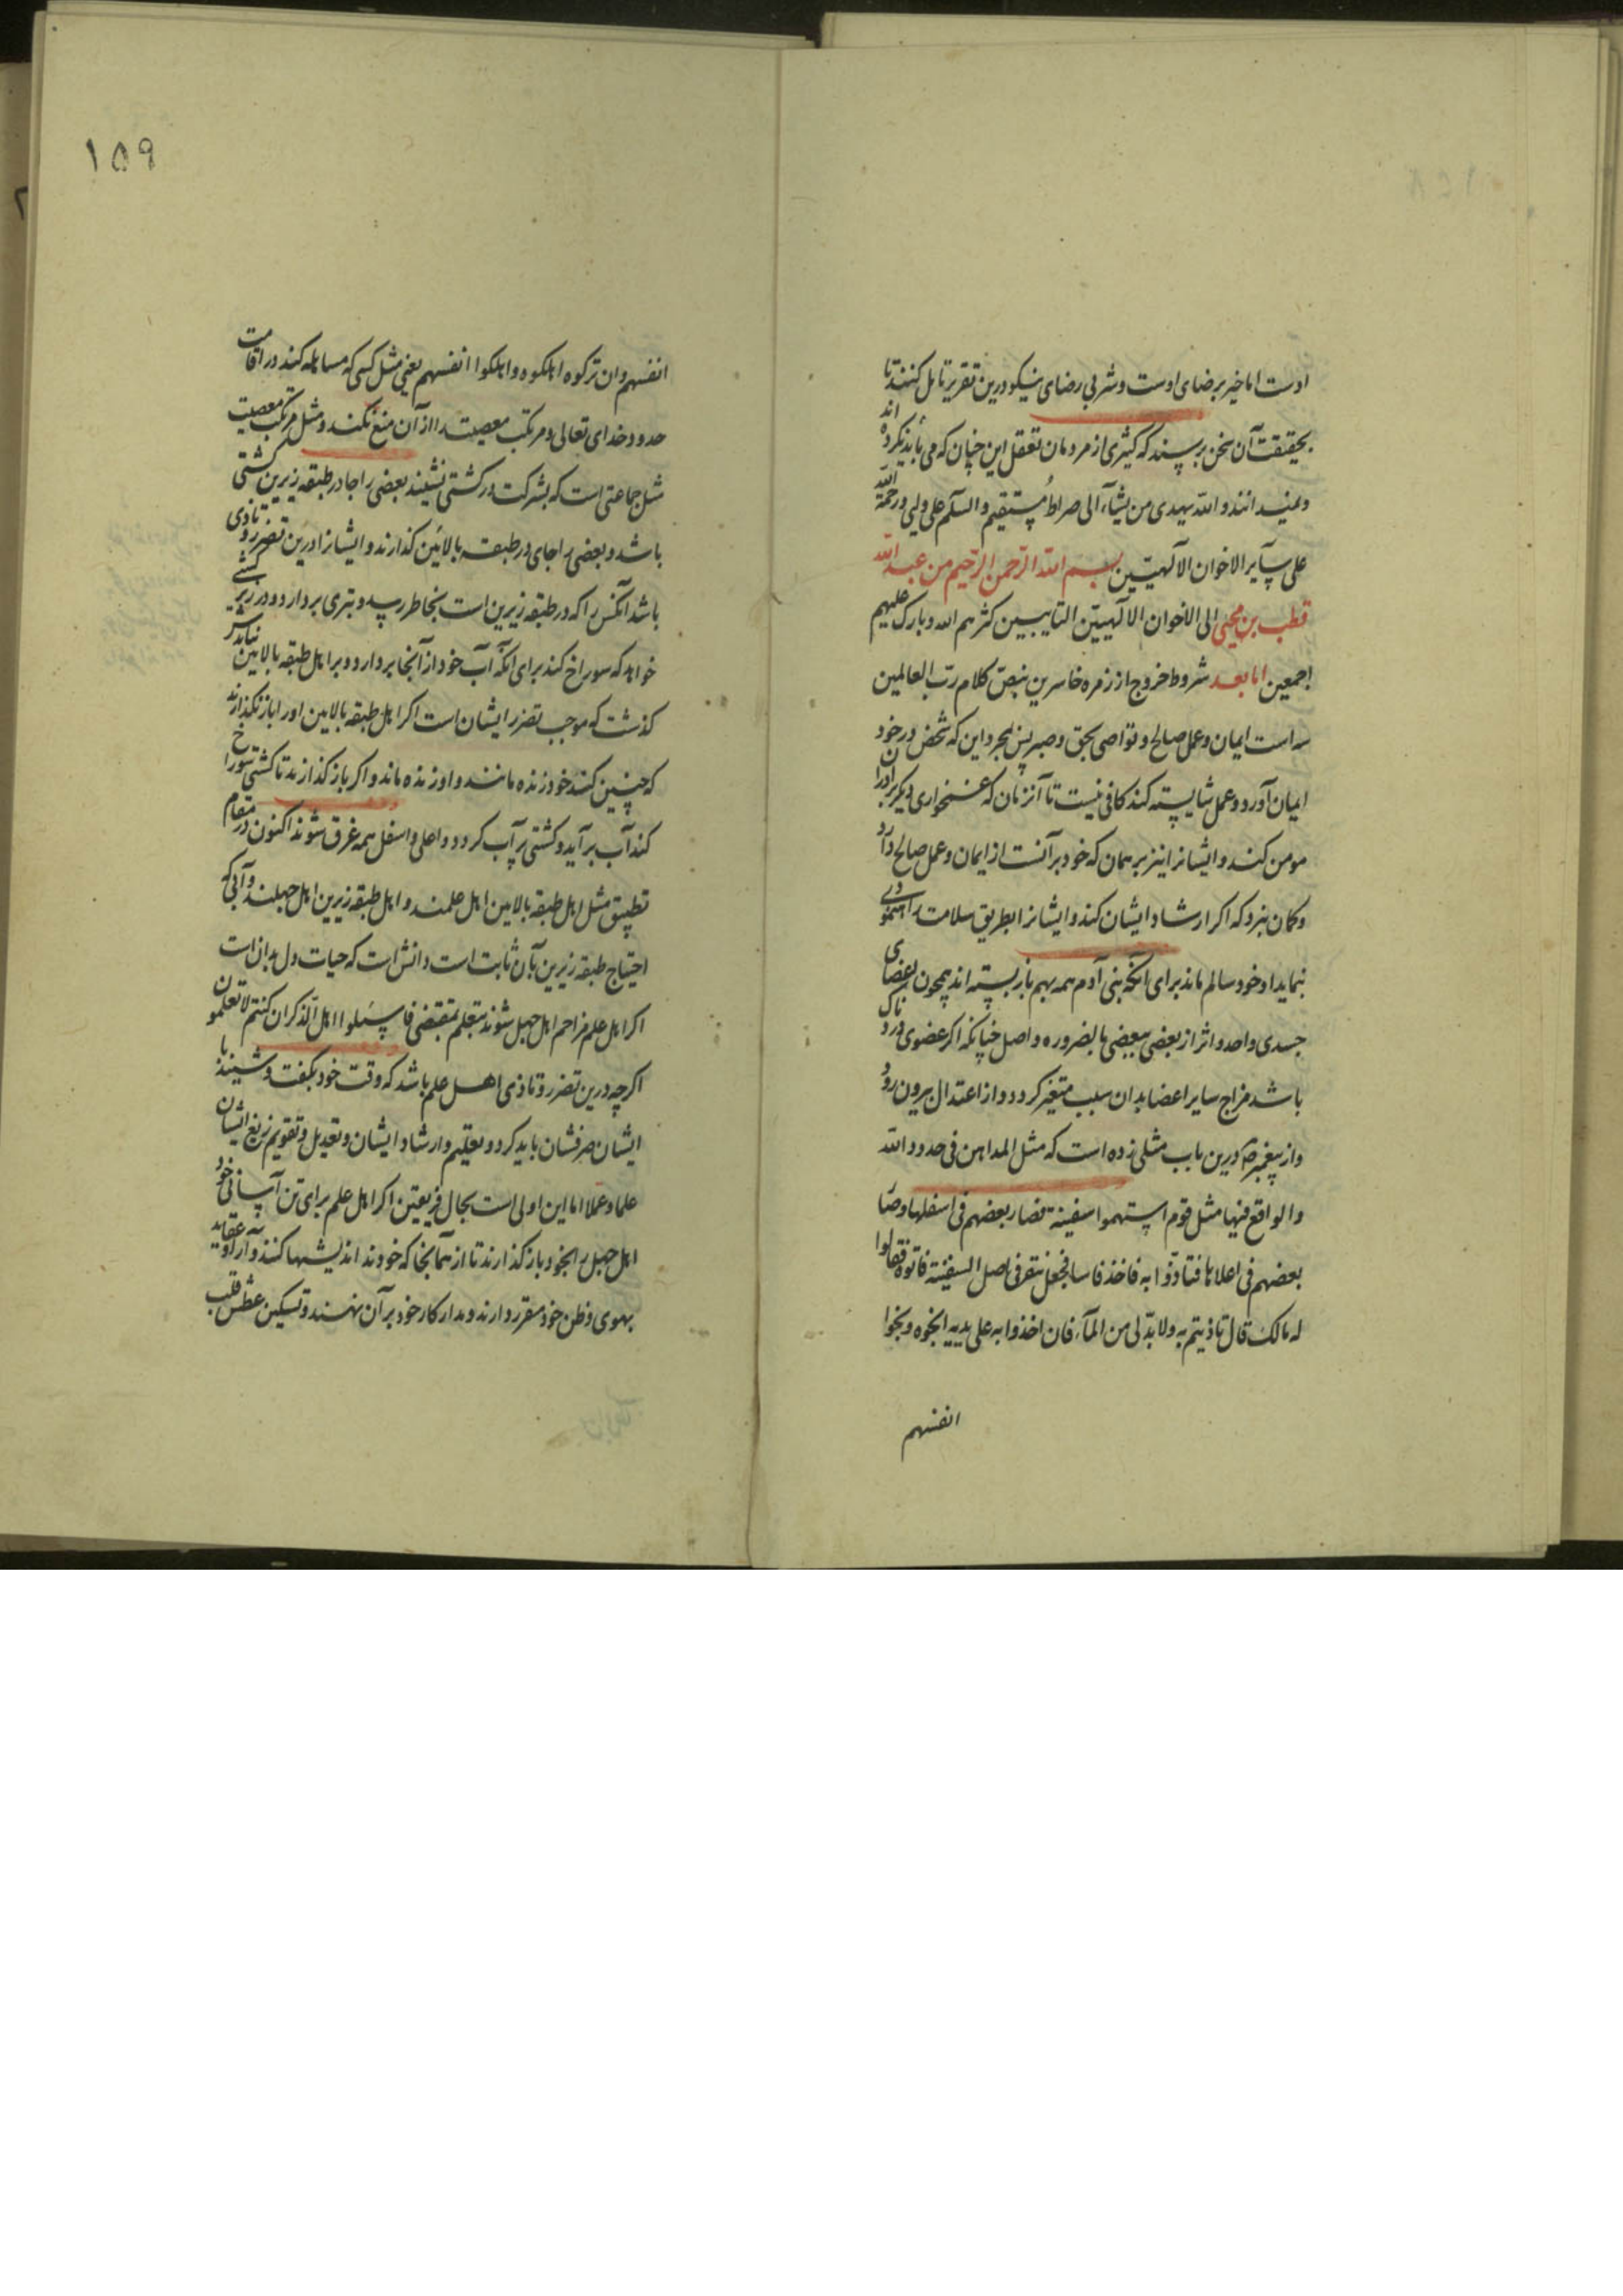 اوست اما خیر برضای اوست و شر بی رضای نیکو درین تقریر تامل کنند تا
بحقیقت آن سخن برسند که کثیری از مردمان تعقل این چنان که می باید نکرده اند
و نمیدانند والله یهدی من یشآء الی صراط مستقیم والسلم علی ولی ورحمة الله
علی سایر الاخوان الآلهیین بسم الله الرحمن الرحیم من عبد الله
قطب بن محیی الی الاخوان الالهیین التایبین کثرهم الله وبارک علیهم
اجمعین اما بعد شروط خروج از زمره خاسرین بنص کلام رب العالمین
سه است ایمان و عمل صالح و تواصی بحق و صبر پس بمجرد این که شخص در خود
ایمان آورد و عمل شایسته کند کافی نیست تا آنزمان که غمخواری دیگر برادران
مومن کند و ایشانرا نیز بر همان که خود برآنست از ایمان و عمل صالح دارد
و کمان نبرد که اکر ارشاد ایشان نکند و ایشانرا بطریق سلامت راهنمونی
ننماید او خود سالم ماند برای آنکه بنی آدم همه بهم باز بسته اند همچون اعضای
جسدی واحد و اثر از بعضی ببعضی بالضروره واصل چنانکه اکر عضوی دردناک
باشد مزاج سایر اعضا بدان سبب متغیر کردد و از اعتدال بیرون رود
و از پیغمبر ص درین باب مثلی زده است که مثل المداهن فی حدود الله
والواقع فیها مثل قوم استهموا سفینة فصار بعضهم فی اسفلها وصار
بعضهم فی اعلاها فتاذوا به فاخذ فاسا فجعل ینقر فی اصل السفینة فاتوه فقالوا
له مالک قال تاذیتم به ولا بد لی من المآء فان اخذوا به علی یدیه انجوه ونجوا
انفسهم
١٥٩
انفسهم وان ترکوه اهلکوه واهلکوا انفسهم یعنی مثل کسی که مساهله کند در اقامت
حدود خدای تعالی و مرتکب معصیت را از آن منع نکند و مثل مرتکب معصیت
مثل جماعتی است که بشرکت در کشتی نشینند بعضی را جا در طبقه زیرین کشتی
باشد و بعضی را جای در طبقه بالائین کذارند و ایشانرا درین تضرر و تاذی
باشد آنکس را که در طبقه زیرین است بخاطر رسد و تبری بردارد و در زیر کشتی
خواهد که سوراخ کند برای آنکه آب خود از آنجا بردارد و بر اهل طبقه بالایین نبایدش
کذشت که موجب تضرر ایشان است اکر اهل طبقه بالایین او را باز نکذارند
که چنین کند خود زنده مانند و او زنده ماند و اکر باز کذارند تا کشتی سوراخ
کند آب برآید و کشتی پر آب کردد و اعلی و اسفل همه غرق شوند اکنون در مقام
تطبیق مثل اهل طبقه بالایین اهل علمند و اهل طبقه زیرین اهل جهلند و آبی که
احتیاج طبقه زیرین بآن ثابت است دانش است که حیات دل بدان است
اکر اهل علم مزاحم اهل جهل شوند بتعلم بمقتضی فاسئلوا اهل الذکر ان کنتم لا تعلمون
اکرچه درین تضرر و تاذی اهل علم باشد که وقت خود بکفت و شنید با
ایشان صرفشان باید کرد و بتعلیم و ارشاد ایشان و تعدیل و تقویم زیغ ایشان
علما و عملا اما این اولی است بحال فریقین اکر اهل علم برای تن آسانی خود
اهل جهل را بخود باز کذارند تا از همانجا که خودند اندیشها کنند و آرا و عقاید
بهوی و ظن خود مقرر دارند و مدار کار خود بر آن نهند و تسکین عطش قلب